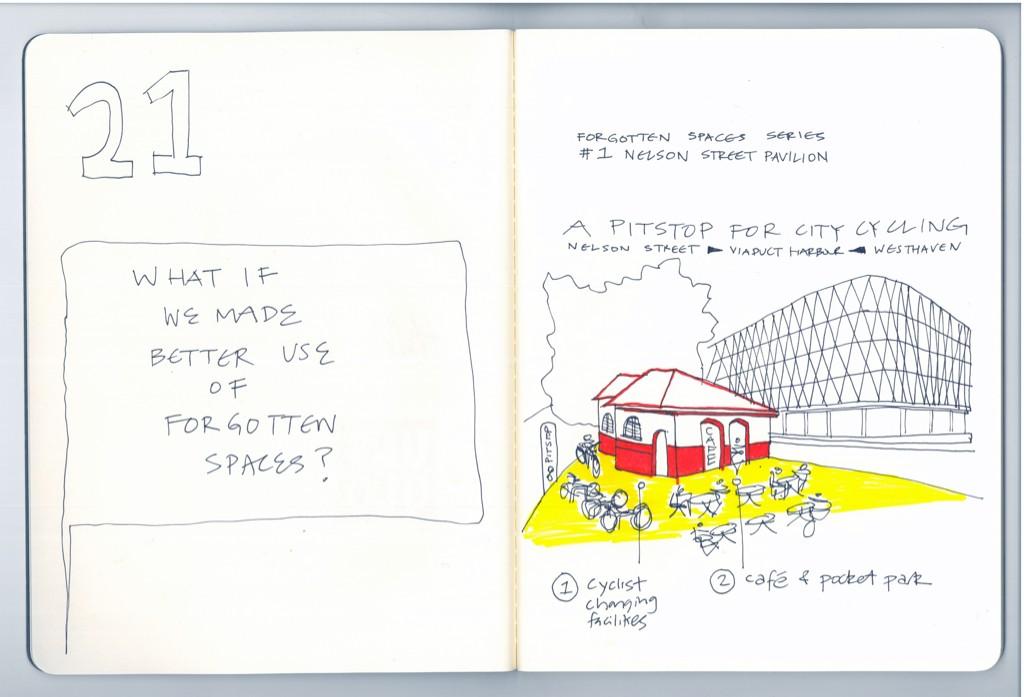 21
WHAT IF
WE MADE
BETTER USE
OF
FORGOTTEN
SPACES?
FORGOTTEN SPACES SERIES
#1 NELSON STREET PAVILION
A PITSTOP FOR CITY CYCLING
NELSON STREET ► VIADUCT HARBOUR ◄ WESTHAVEN
PITSTOP
CAFE
1 cyclist
changing
facilities
2 café & pocket park